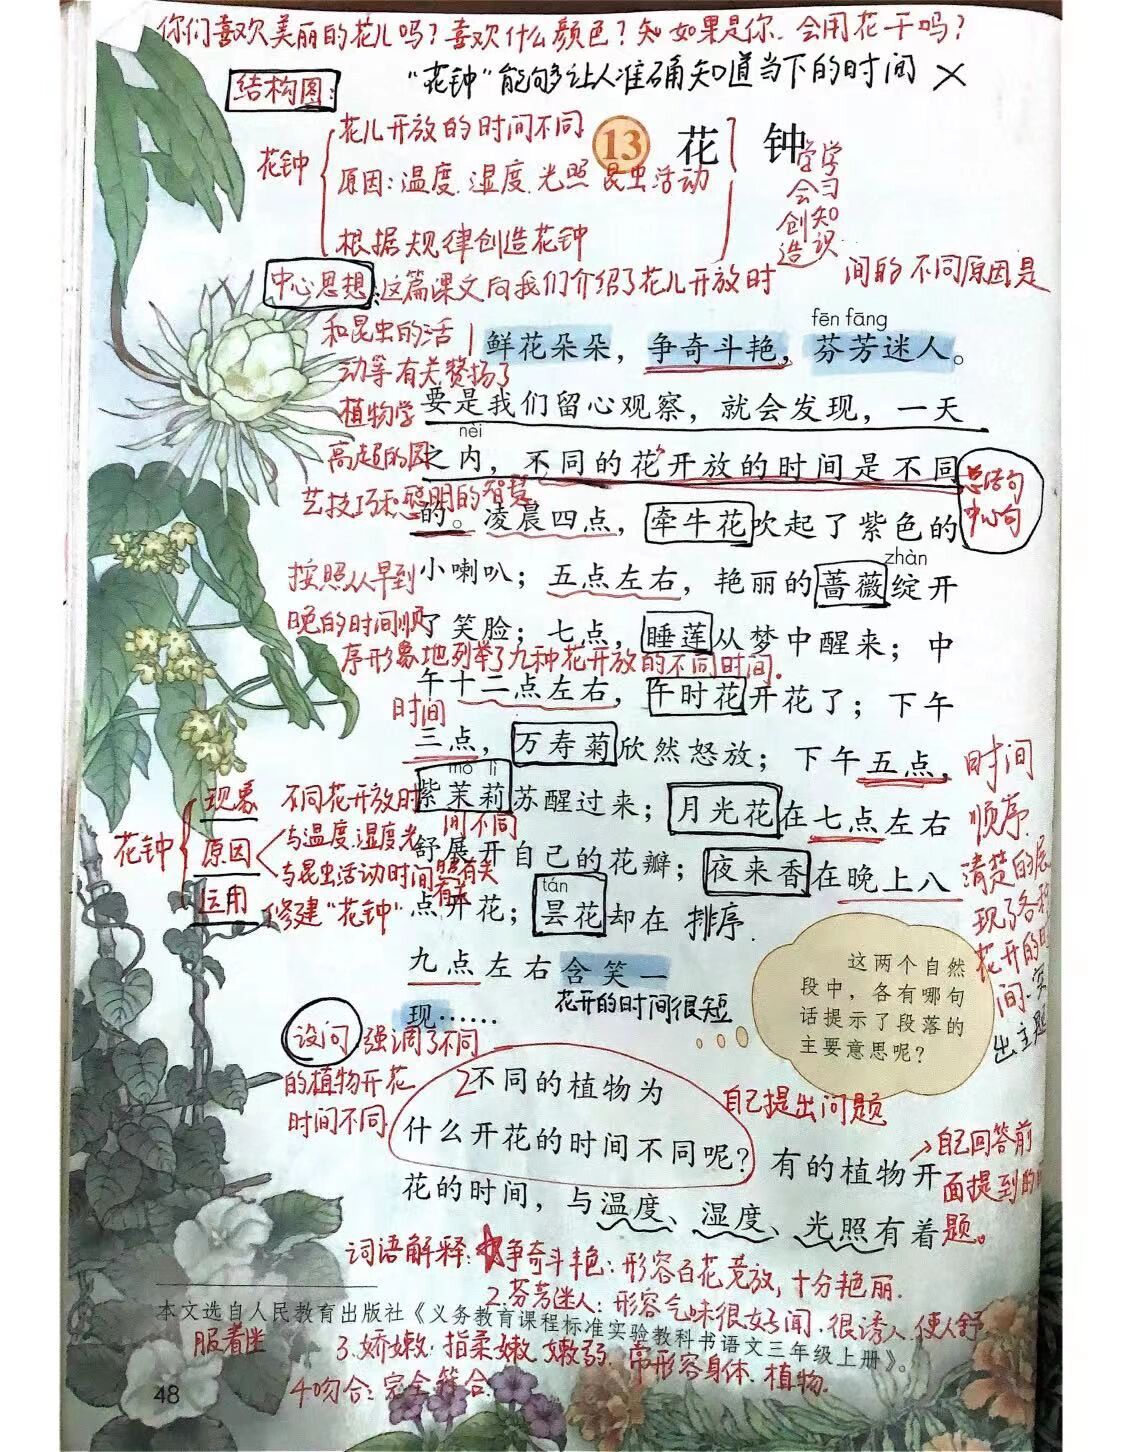 你们喜欢美丽的花儿吗？喜欢什么颜色？如果是你，会用花干吗？
"花钟"能够让人准确知道当下的时间 ×
结构图：
花钟
花儿开放的时间不同
原因：温度、湿度、光照 昆虫活动
根据规律创造花钟
学会创造
学习知识
13 花 钟
中心思想：这篇课文向我们介绍了花儿开放时
间的不同原因是
和昆虫的活
动等有关赞扬了
植物学
高超的园
艺技巧和聪明的智慧
fēn fāng
鲜花朵朵，争奇斗艳，芬芳迷人。
要是我们留心观察，就会发现，一天
nèi
之内，不同的花开放的时间是不同
的。凌晨四点，牵牛花吹起了紫色的
总结句
中心句
zhàn
小喇叭；五点左右，艳丽的蔷薇绽开
了笑脸；七点，睡莲从梦中醒来；中
午十二点左右，午时花开花了；下午
三点，万寿菊欣然怒放；下午五点，
mò lì
紫茉莉苏醒过来；月光花在七点左右
舒展开自己的花瓣；夜来香在晚上八
tán
点开花；昙花却在 排序
九点左右含笑一
现……
花开的时间很短
按照从早到
晚的时间顺
序形象地列举了九种花开放的不同时间.
时间
花钟
现象 不同花开放时
间不同
原因
与温度、湿度光
照有关
与昆虫活动时间
有关
运用 修建"花钟"
时间
顺序
清楚的展
现了各种
花开的时
间.突
出主题
这两个自然
段中，各有哪句
话提示了段落的
主要意思呢？
设问 强调了不同
的植物开花
时间不同
2
不同的植物为
什么开花的时间不同呢？有的植物开
花的时间，与温度、湿度、光照有着
自己提出问题
自己回答前
面提到的问
题。
词语解释：1.争奇斗艳：形容百花竞放，十分艳丽.
2.芬芳迷人：形容气味很好闻.很诱人.使人舒
本文选自人民教育出版社《义务教育课程标准实验教科书语文三年级上册》。
3.娇嫩：指柔嫩 嫩弱 常形容身体.植物.
4.吻合：完全符合
48